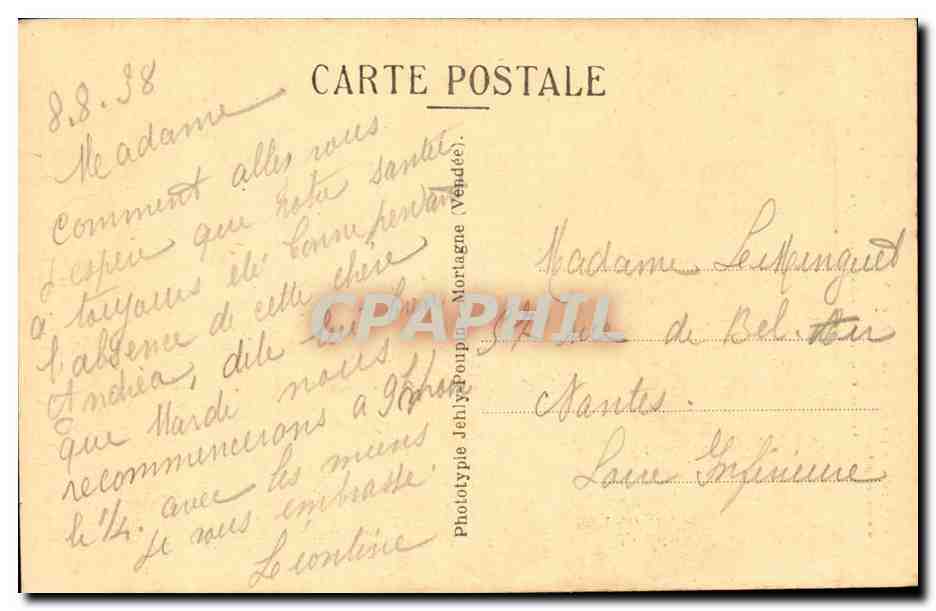 CARTE POSTALE
8.8.38
Madame
comment allez vous
J'espère que votre santée
a toujours été bonne pendant
l'absence de cette chère
Andréa, dite lui bien
que Mardi nous
recommencerons a 9h moins
le 1/4. avec les miens
je vous embrasse
Léontine
Phototypie Jehly-Poupin, Mortagne (Vendée).
Madame LeMinguet
57 Rue de Bel-Air
Nantes.
Loire Inférieure
CPAPHIL